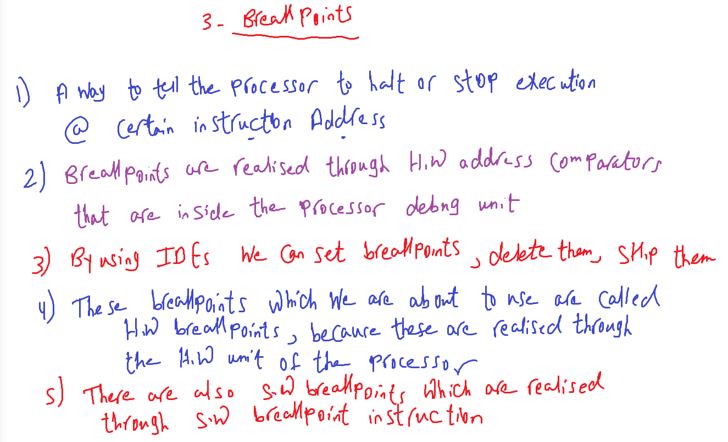 3- Break Points
1) A way to tell the processor to halt or stop execution
@ certain instruction Address
2) Breakpoints are realised through H.W address comparators
that are inside the processor debug unit
3) By using IDEs we can set breakpoints, delete them, skip them
4) These breakpoints which we are about to use are called
H.W breakpoints, because these are realised through
the H.W unit of the processor
5) There are also S.W breakpoints which are realised
through S.W breakpoint instruction